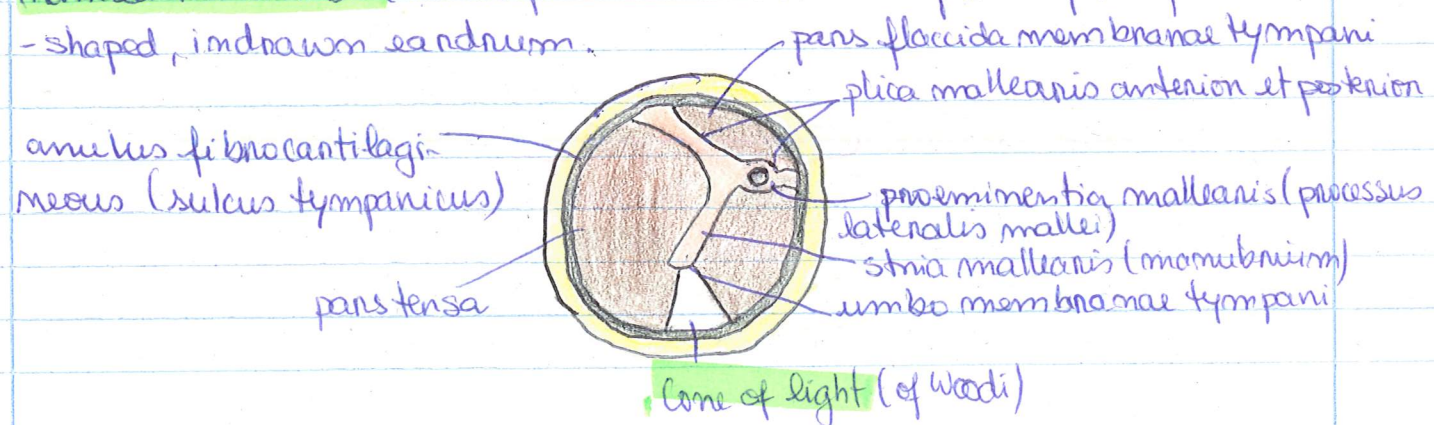 -shaped, indrawn eardrum.
pars flaccida membranae tympani
plica mallearis anterior et posterior
anulus fibrocartilagi-
neous (sulcus tympanicus)
proeminentia mallearis (processus
lateralis mallei)
stria mallearis (manubrium)
umbo membranae tympani
pars tensa
Cone of light (of Woodi)